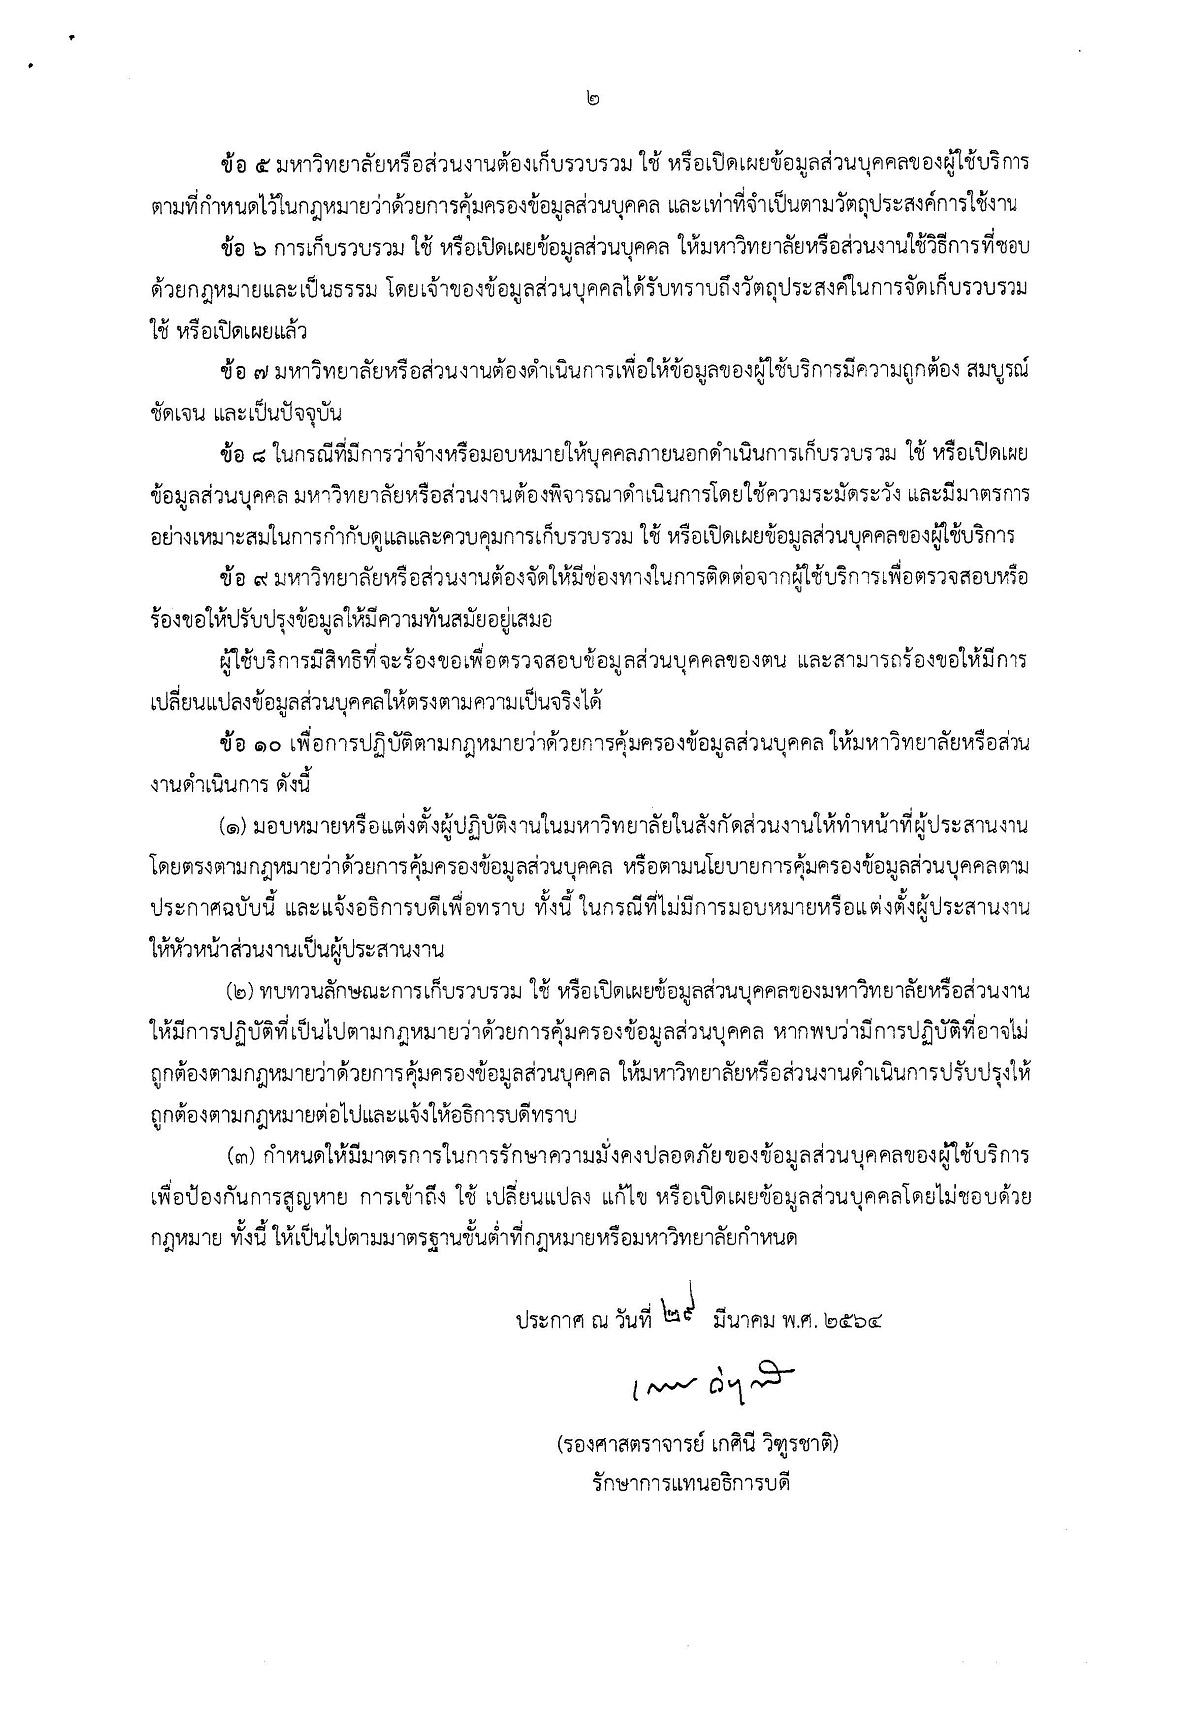 ๒
ข้อ ๕ มหาวิทยาลัยหรือส่วนงานต้องเก็บรวบรวม ใช้ หรือเปิดเผยข้อมูลส่วนบุคคลของผู้ใช้บริการ
ตามที่กำหนดไว้ในกฎหมายว่าด้วยการคุ้มครองข้อมูลส่วนบุคคล และเท่าที่จำเป็นตามวัตถุประสงค์การใช้งาน
ข้อ ๖ การเก็บรวบรวม ใช้ หรือเปิดเผยข้อมูลส่วนบุคคล ให้มหาวิทยาลัยหรือส่วนงานใช้วิธีการที่ชอบ
ด้วยกฎหมายและเป็นธรรม โดยเจ้าของข้อมูลส่วนบุคคลได้รับทราบถึงวัตถุประสงค์ในการจัดเก็บรวบรวม
ใช้ หรือเปิดเผยแล้ว
ข้อ ๗ มหาวิทยาลัยหรือส่วนงานต้องดำเนินการเพื่อให้ข้อมูลของผู้ใช้บริการมีความถูกต้อง สมบูรณ์
ชัดเจน และเป็นปัจจุบัน
ข้อ ๘ ในกรณีที่มีการว่าจ้างหรือมอบหมายให้บุคคลภายนอกดำเนินการเก็บรวบรวม ใช้ หรือเปิดเผย
ข้อมูลส่วนบุคคล มหาวิทยาลัยหรือส่วนงานต้องพิจารณาดำเนินการโดยใช้ความระมัดระวัง และมีมาตรการ
อย่างเหมาะสมในการกำกับดูแลและควบคุมการเก็บรวบรวม ใช้ หรือเปิดเผยข้อมูลส่วนบุคคลของผู้ใช้บริการ
ข้อ ๙ มหาวิทยาลัยหรือส่วนงานต้องจัดให้มีช่องทางในการติดต่อจากผู้ใช้บริการเพื่อตรวจสอบหรือ
ร้องขอให้ปรับปรุงข้อมูลให้มีความทันสมัยอยู่เสมอ
ผู้ใช้บริการมีสิทธิที่จะร้องขอเพื่อตรวจสอบข้อมูลส่วนบุคคลของตน และสามารถร้องขอให้มีการ
เปลี่ยนแปลงข้อมูลส่วนบุคคลให้ตรงตามความเป็นจริงได้
ข้อ ๑๐ เพื่อการปฏิบัติตามกฎหมายว่าด้วยการคุ้มครองข้อมูลส่วนบุคคล ให้มหาวิทยาลัยหรือส่วน
งานดำเนินการ ดังนี้
(๑) มอบหมายหรือแต่งตั้งผู้ปฏิบัติงานในมหาวิทยาลัยในสังกัดส่วนงานให้ทำหน้าที่ผู้ประสานงาน
โดยตรงตามกฎหมายว่าด้วยการคุ้มครองข้อมูลส่วนบุคคล หรือตามนโยบายการคุ้มครองข้อมูลส่วนบุคคลตาม
ประกาศฉบับนี้ และแจ้งอธิการบดีเพื่อทราบ ทั้งนี้ ในกรณีที่ไม่มีการมอบหมายหรือแต่งตั้งผู้ประสานงาน
ให้หัวหน้าส่วนงานเป็นผู้ประสานงาน
(๒) ทบทวนลักษณะการเก็บรวบรวม ใช้ หรือเปิดเผยข้อมูลส่วนบุคคลของมหาวิทยาลัยหรือส่วนงาน
ให้มีการปฏิบัติที่เป็นไปตามกฎหมายว่าด้วยการคุ้มครองข้อมูลส่วนบุคคล หากพบว่ามีการปฏิบัติที่อาจไม่
ถูกต้องตามกฎหมายว่าด้วยการคุ้มครองข้อมูลส่วนบุคคล ให้มหาวิทยาลัยหรือส่วนงานดำเนินการปรับปรุงให้
ถูกต้องตามกฎหมายต่อไปและแจ้งให้อธิการบดีทราบ
(๓) กำหนดให้มีมาตรการในการรักษาความมั่งคงปลอดภัยของข้อมูลส่วนบุคคลของผู้ใช้บริการ
เพื่อป้องกันการสูญหาย การเข้าถึง ใช้ เปลี่ยนแปลง แก้ไข หรือเปิดเผยข้อมูลส่วนบุคคลโดยไม่ชอบด้วย
กฎหมาย ทั้งนี้ ให้เป็นไปตามมาตรฐานขั้นต่ำที่กฎหมายหรือมหาวิทยาลัยกำหนด
ประกาศ ณ วันที่ ๒๙ มีนาคม พ.ศ. ๒๕๖๔
(รองศาสตราจารย์ เกศินี วิฑูรชาติ)
รักษาการแทนอธิการบดี